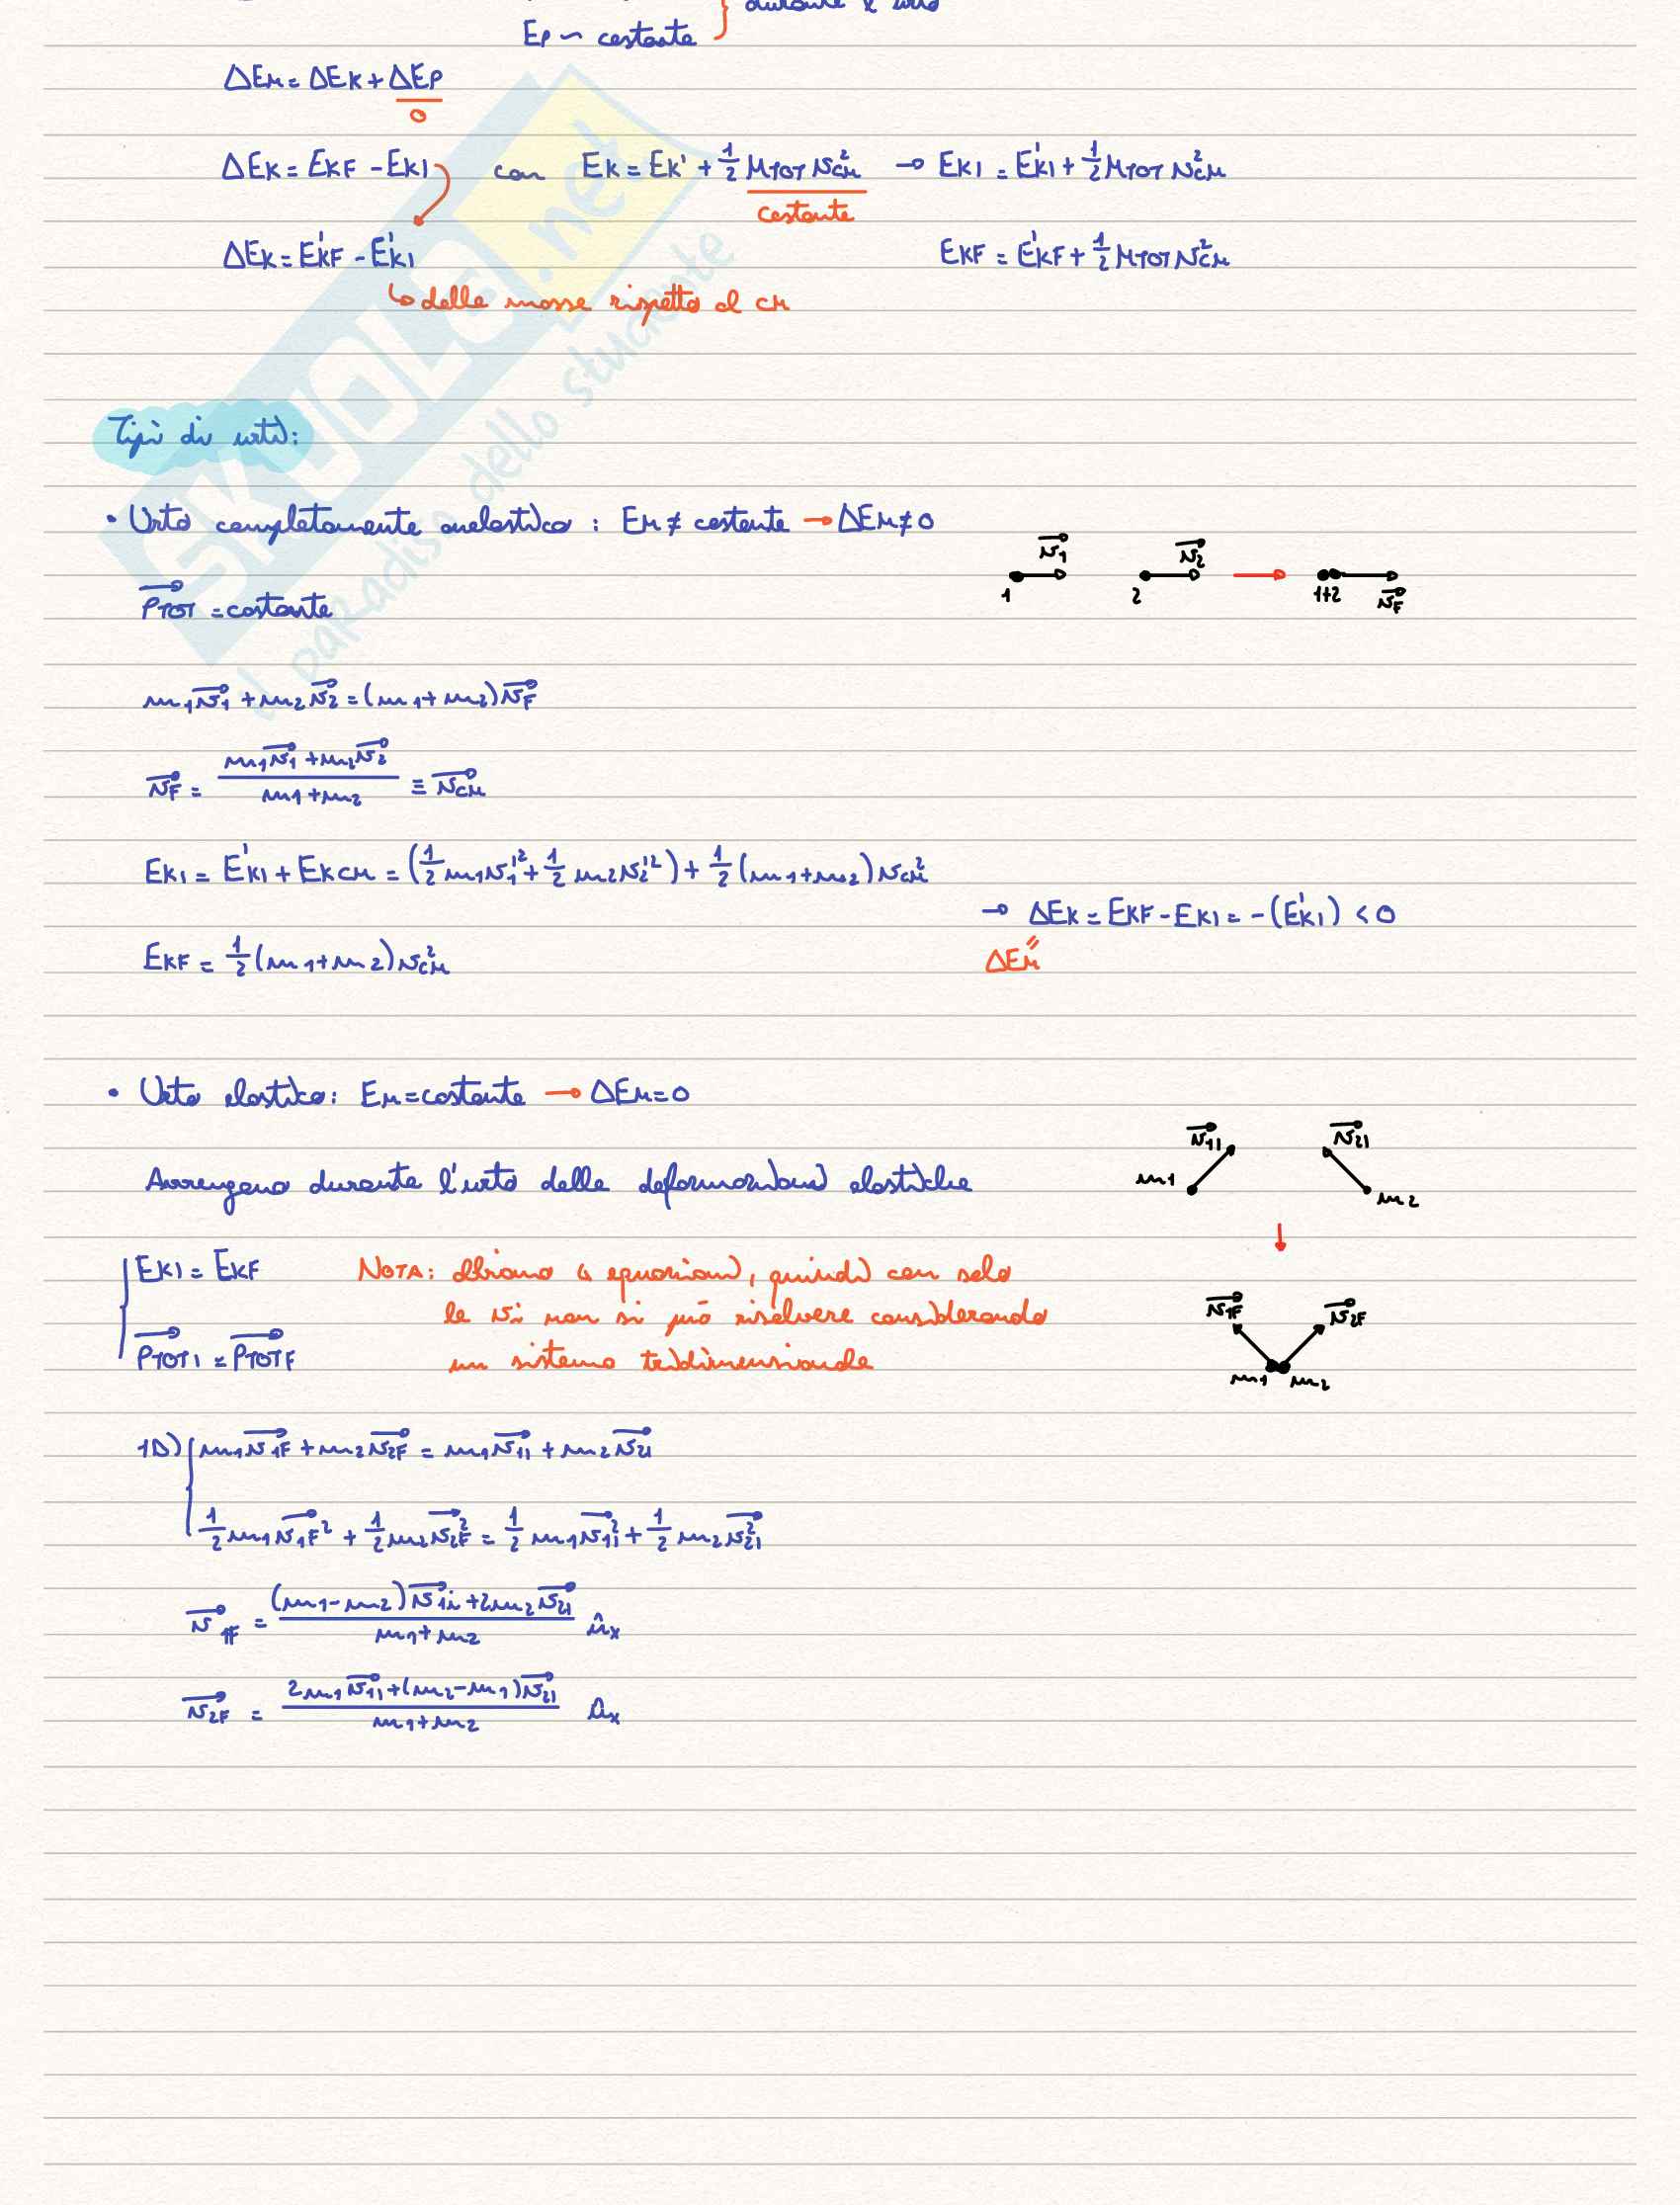 durante l'urto
Ep ~ costante
ΔEM = ΔEK + ΔEP
0
ΔEK = EKF - EKI con EK = EK' + 1/2 MTOT vCM² → EKI = E'KI + 1/2 MTOT vCM²
costante
ΔEK = E'KF - E'KI EKF = E'KF + 1/2 MTOT vCM²
↳ delle masse rispetto al CM
Tipi di urti:
• Urto completamente anelastico: EM ≠ costante → ΔEM ≠ 0
v⃗1 v⃗2
1 2 → 1+2 v⃗F
P⃗TOT = costante
m1v⃗1 + m2v⃗2 = (m1 + m2)v⃗F
v⃗F = (m1v⃗1 + m2v⃗2)/(m1 + m2) ≡ v⃗CM
EKI = E'KI + EKCM = (1/2 m1v1'² + 1/2 m2v2'²) + 1/2 (m1+m2)vCM²
→ ΔEK = EKF - EKI = -(E'KI) < 0
ΔEM
EKF = 1/2 (m1+m2)vCM²
• Urto elastico: EM = costante → ΔEM = 0
v⃗1I v⃗2I
m1 m2
Avvengono durante l'urto delle deformazioni elastiche
EKI = EKF
NOTA: abbiamo 4 equazioni, quindi con solo
le vi non si può risolvere considerando
v⃗1F v⃗2F
P⃗TOTI = P⃗TOTF
un sistema tridimensionale
m1 m2
1D) m1v⃗1F + m2v⃗2F = m1v⃗1I + m2v⃗2I
1/2 m1v⃗1F² + 1/2 m2v⃗2F² = 1/2 m1v⃗1I² + 1/2 m2v⃗2I²
v⃗1F = ((m1-m2)v⃗1i + 2m2v⃗2I)/(m1+m2) ûx
v⃗2F = (2m1v⃗1I + (m2-m1)v⃗2I)/(m1+m2) ûx
SKUOLA.net
il paradiso dello studente